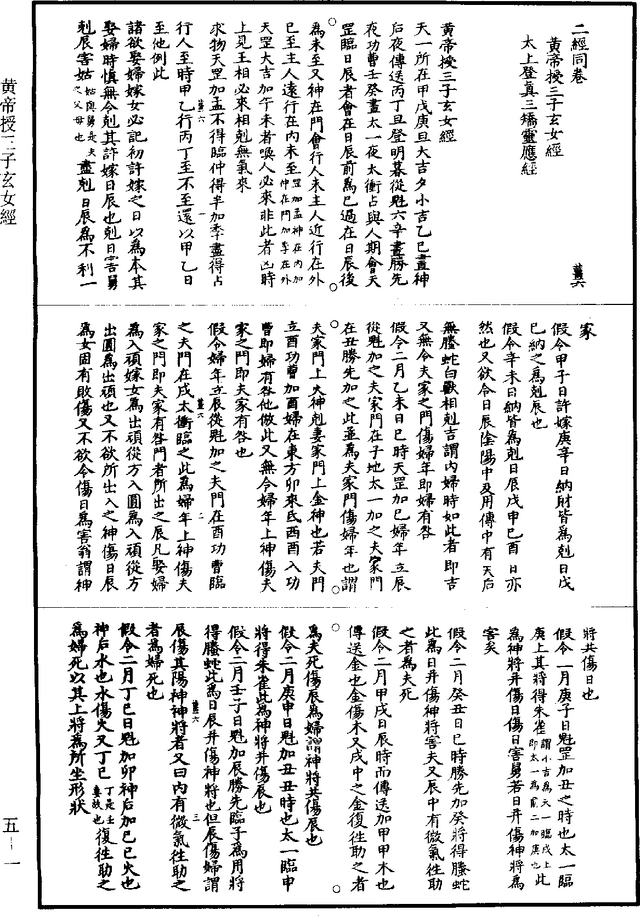 黃帝授三子玄女經
五-一
二經同卷
黃帝授三子玄女經
太上登真三矯靈應經
薑六
黃帝授三子玄女經
天一所在甲戊庚旦大吉夕小吉乙巳晝神
后夜傳送丙丁旦登明暮從魁六辛晝勝先
夜功曹壬癸晝太一夜太衝占與人期會天
罡臨日辰者會在日辰前為已過在日辰後
為未至又神在門會行人未主人近行在外
已至主人遠行在內未至罡加孟神在內加仲在門加季在外
天罡大吉加午未者喚人必來非此者凶時
上見王相必來相剋無氣來
求物天罡加孟不得臨仲得半加季盡得占
行人至時甲乙行丙丁至不至還以甲乙日
至他倒此
諸欲娶婦嫁女必記初許嫁之日以為本其
娶婦時慎無令剋其許嫁日辰也剋日害舅
剋辰害姑姑與舅是夫之父母也盡剋日辰為不利一
家
假令甲子日許嫁庚辛日納財皆為剋日戊
己納之為剋辰也
假令辛未日納皆為剋日辰戊申己酉日亦
然也又欲令日辰陰陽中及用傳中有天后
無螣蛇白獸相剋吉謂內婦時如此者即吉
又無令夫家之門傷婦年即婦有咎
假令二月乙未日巳時天罡加巳婦年立辰
從魁加之夫家門在子地太一加之夫家門
在丑勝先加之此並為夫家門傷婦年也謂
夫家門上火神剋妻家門上金神也若夫門
立酉功曹加酉婦在東方卯來氐西酉入功
曹即婦有咎他倣此又無令婦年上神傷夫
家之門即夫家有咎也
假令婦年立辰從魁加之夫門在酉功曹臨
之夫門在戌太衝臨之此為婦年上神傷夫
家之門即夫家有咎門者所出之辰凡娶婦
為入頑嫁女為出頑從方入圓為入頑從方
出圓為出頑也又不欲所出入之神傷日辰
為女固有敗傷又不欲令傷日為害翁謂神
將共傷日也
假令一月庚子日魁罡加丑之時也太一臨
庚上其將得朱雀謂小吉為天一臨戌上即太一為貳二加庚也此
為神將并傷日傷日害舅若日并傷神將為
害矣
假令二月癸丑日巳時勝先加癸將得螣蛇
此為日并傷神將害夫又辰中有微氣徃助
之者為夫死
假令二月甲戌日辰時而傳送加甲甲木也
傳送金也金傷木又戌中之金復徃助之者
為夫死傷辰為婦謂神將共傷辰也
假令二月庚申日魁加丑丑時也太一臨申
將得朱雀此為神將并傷辰也
假令二月壬子日魁加辰勝先臨子為用將
得螣蛇此為日辰并傷神將也但辰傷婦謂
辰傷其陽神神將者又曰內有微氣徃助之
者為婦死也
假令二月丁巳日魁加卯神后加巳巳火也
神后水也水傷火又丁巳丁是壬妻故也復徃助之
為婦死以其上將為所坐形狀